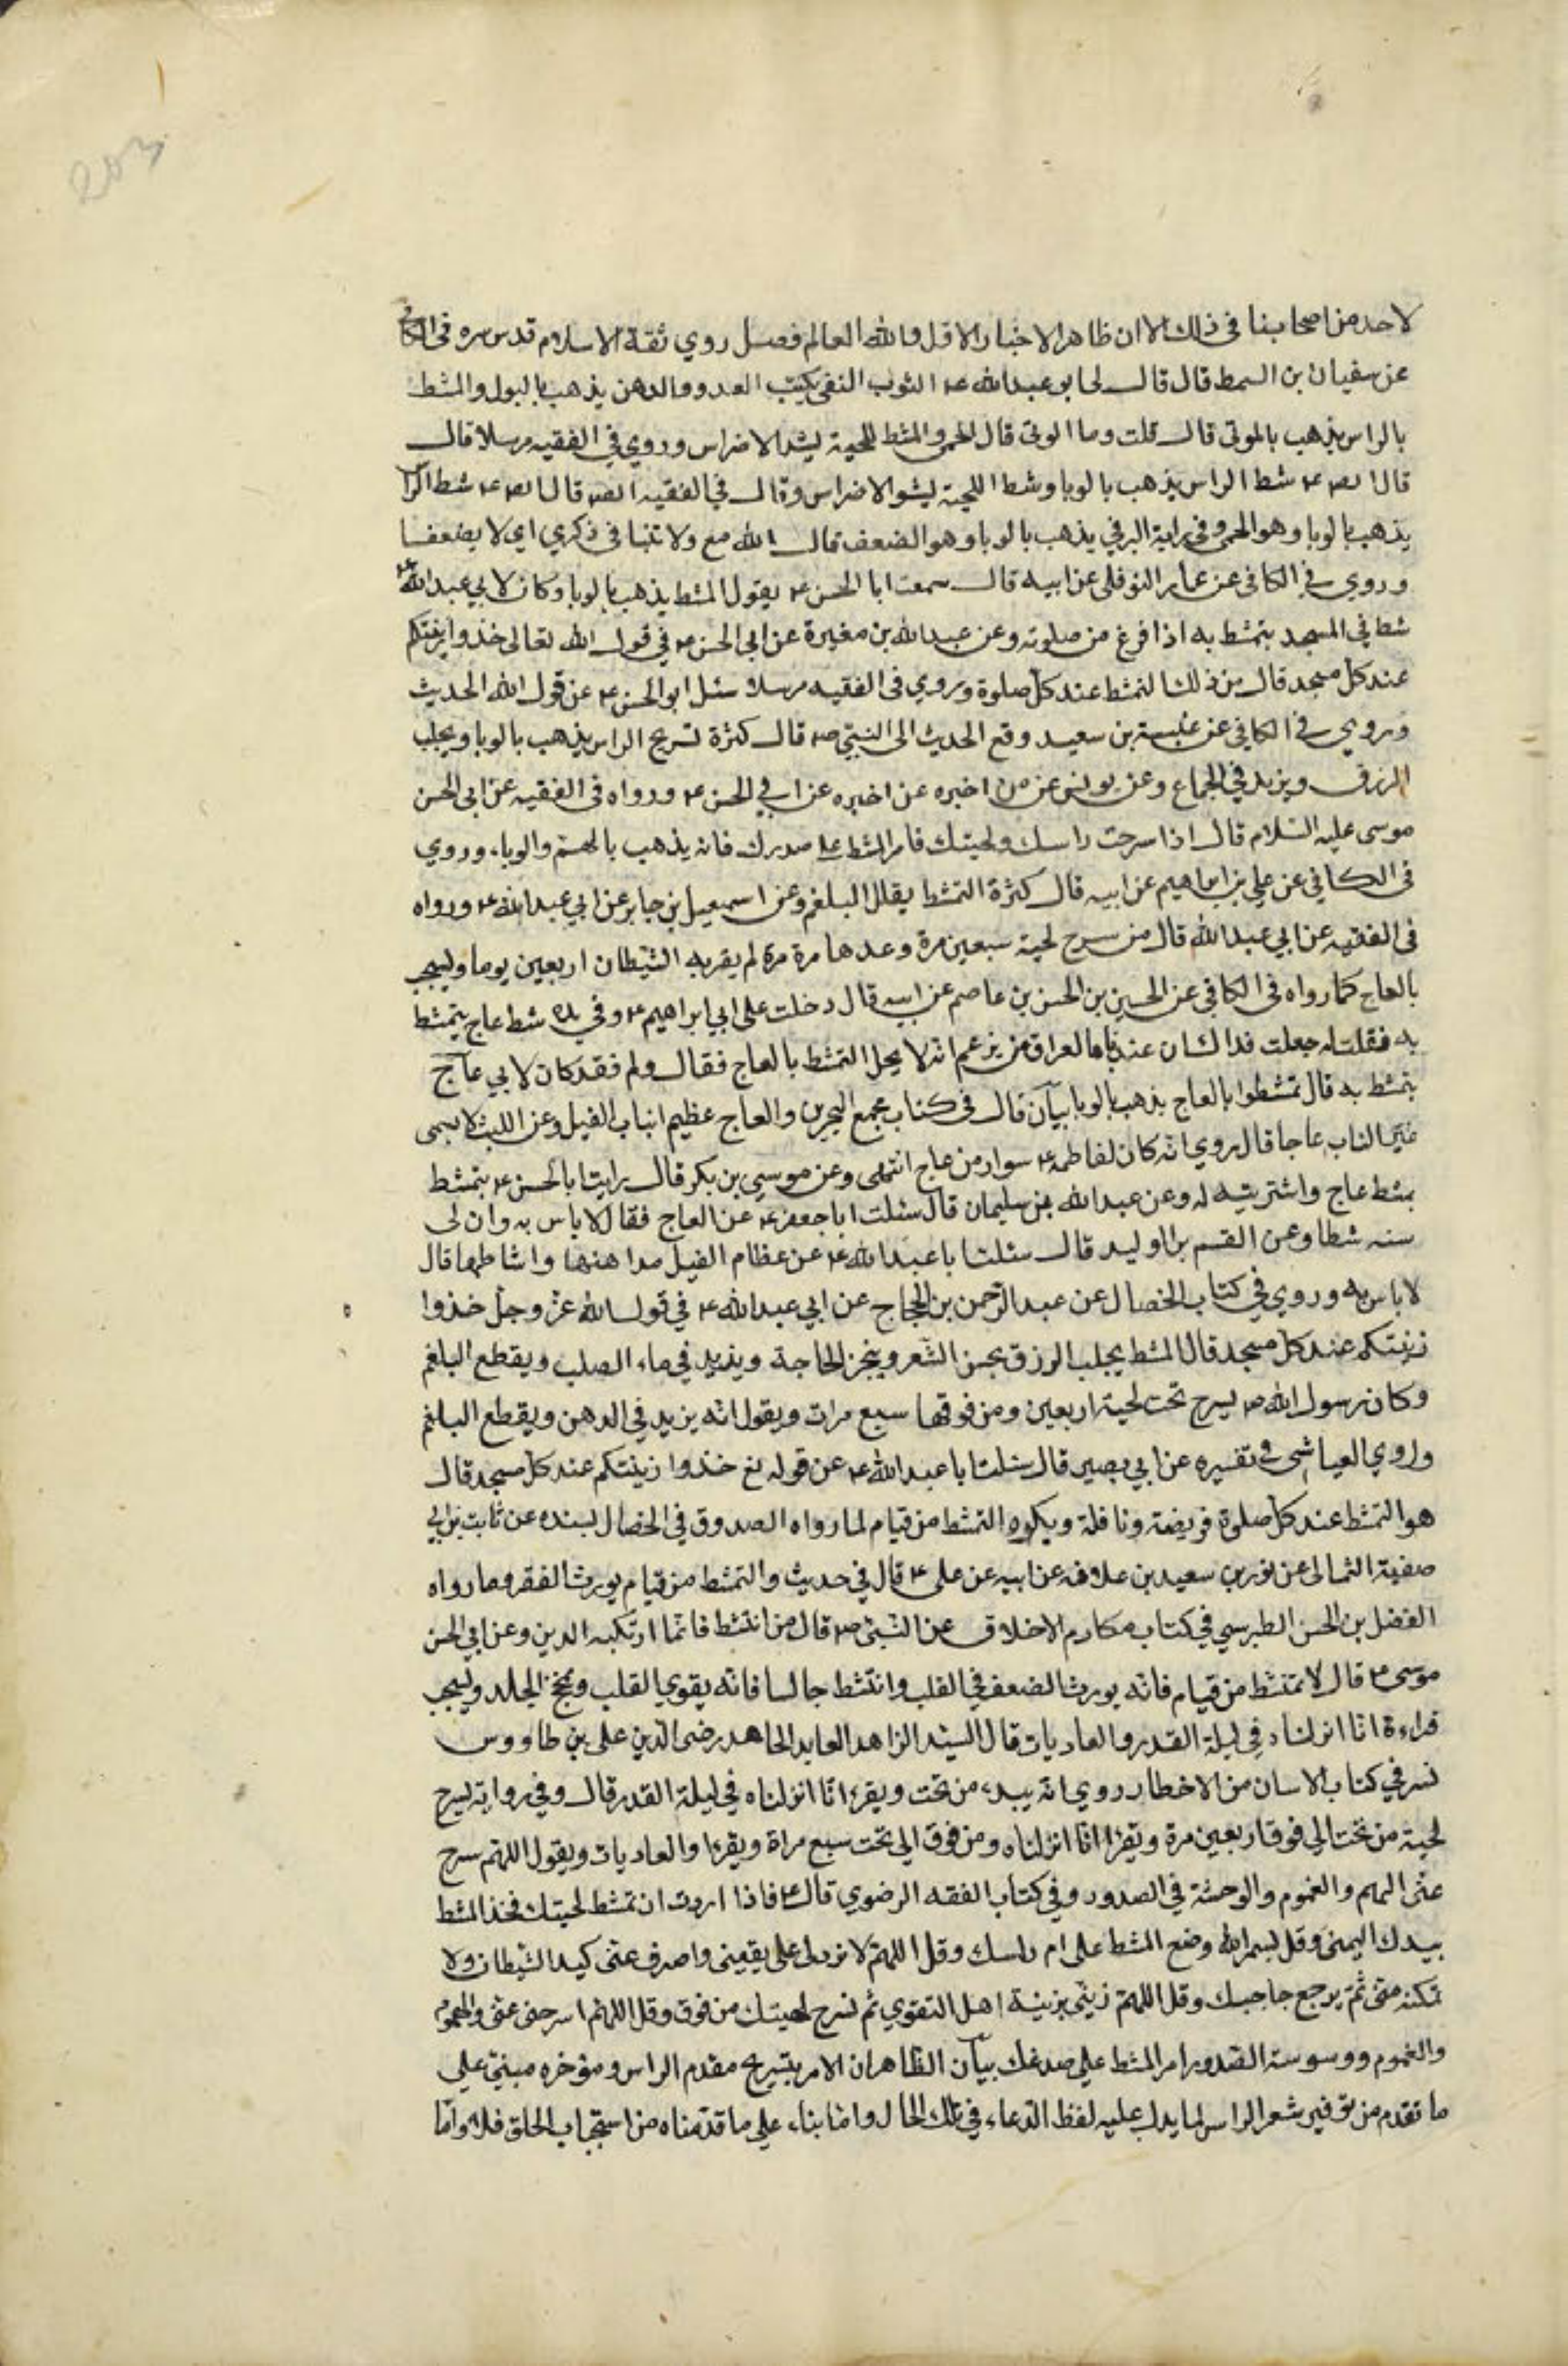 203
لاحد من اصحابنا فى ذلك الا ان ظاهر الاخبار الاول والله العالم فصل روي ثقة الاسلام قدس سره فى الكافى
عن سفيان بن السمط قال قال لى ابو عبدالله ع الثوب النقى يكبت العدو والدهن يذهب بالبول والمشط
بالراس يذهب بالموتى قال قلت وما الوتى قال الحمى والمشط للحية يشد الاضراس وروي في الفقيه مرسلا قال
قال الص ع مشط الراس يذهب بالوبا ومشط اللحية يشو الاضراس وقال في الفقيه الص قال الص ع مشط الرا
يذهب بالوبا وهو الحمى وفى رواية البرقي يذهب بالوبا وهو الضعف قال الله مع ولا تنيا فى ذكري اي لا يضعفا
وروي فى الكافى عن عمار النوفلى عن ابيه قال سمعت ابا الحسن ع يقول المشط يذهب بالوبا وكان لابي عبدالله ع
مشط في المسجد يتمشط به اذا فرغ من صلوته وعن عبدالله بن مغيرة عن ابى الحسن ع في قول الله تعالى خذوا زينتكم
عند كل مسجد قال من ذلك التمشط عند كل صلوة وروي فى الفقيه مرسلا سئل ابو الحسن ع عن قول الله الحديث
وروي فى الكافى عن عنبسة بن سعيد وقع الحديث الى النبي ص قال كثرة تسريح الراس يذهب بالوبا ويجلب
الرزق ويزيد في الجماع وعن يونس عن من اخبره عن اخبره عن ابي الحسن ع ورواه فى الفقيه عن ابى الحسن
موسى عليه السلام قال اذا سرحت راسك ولحيتك فامر المشط على صدرك فانه يذهب بالهم والوباء وروي
فى الكافي عن علي بن ابراهيم عن ابيه قال كثرة التمشط يقلل البلغم وعن اسمعيل بن جابر عن ابي عبدالله ع ورواه
فى الفقيه عن ابي عبد الله قال من سرح لحية سبعين مرة وعدها مرة مرة لم يقربه الشيطان اربعين يوما ويستحب
بالعاج كما رواه فى الكافى عن الحسين بن الحسن بن عاصم عن ابيه قال دخلت على ابي ابراهيم ع وفي يده مشط عاج يتمشط
به فقلت له جعلت فداك ان عندنا بالعراق من يزعم انه لا يحل التمشط بالعاج فقال ولم فقد كان لابي عاج
يتمشط به قال تمشطوا بالعاج يذهب بالوبا بيان قال فى كتاب مجمع البحرين والعاج عظيم انياب الفيل وعن الليث لا يسمى
غير الناب عاجا قال روي انه كان لفاطمة ع سوار من عاج انتهى وعن موسى بن بكر قال رايت ابا الحسن ع يتمشط
بمشط عاج واشتريته له وعن عبدالله بن سليمان قال سئلت ابا جعفر ع عن العاج فقال لا باس به وان لى
منه مشطا وعن القسم بن الوليد قال سئلت ابا عبدالله ع عن عظام الفيل مداهنها وامشاطها قال
لا باس به وروي في كتاب الخصال عن عبد الرحمن بن الحجاج عن ابي عبدالله ع في قول الله عز وجل خذوا
زينتكم عند كل مسجد قال المشط يجلب الرزق يحسن الشعر وينجز الحاجة ويزيد في ماء الصلب ويقطع البلغم
وكان رسول الله ص يسرح تحت لحيته اربعين ومن فوقها سبع مرات ويقول انه يزيد في الدهن ويقطع البلغم
وروي العياشى في تفسيره عن ابي بصير قال سئلت ابا عبدالله ع عن قوله تع خذوا زينتكم عند كل مسجد قال
هو التمشط عند كل صلوة فريضة ونافلة ويكره التمشط من قيام لما رواه الصدوق في الخصال بسنده عن ثابت بن ابي
صفية الثمالى عن ثور بن سعيد بن علاقه عن ابيه عن على ع قال في حديث والتمشط من قيام يورث الفقر وما رواه
الفضل بن الحسن الطبرسي في كتاب مكارم الاخلاق عن النبي ص قال من امتشط قائما ارتكبه الدين وعن ابي الحسن
موسى ع قال لا تمتشط من قيام فانه يورث الضعف في القلب وامتشط جالسا فانه يقوي القلب ويمخخ الجلد ويستحب
قراءة انا انزلناه في ليلة القدر والعاديات قال السيد الزاهد العابد المجاهد رضى الدين على بن طاووس
نسر في كتاب الامان من الاخطار روي انه يبدء من تحت ويقرء انا انزلناه في ليلة القدر قال وفي رواية يسرح
لحية من تحت الى فوق اربعين مرة ويقرا انا انزلناه ومن فوق الى تحت سبع مراة ويقرا والعاديات ويقول اللهم سرح
عنى الهم والغموم والوحشة في الصدور وفي كتاب الفقه الرضوي قال ع فاذا اردت ان تمشط لحيتك فخذ المشط
بيدك اليمنى وقل بسم الله وضع المشط على ام راسك وقل اللهم لا تردلى على يقينى واصرف عنى كيد الشيطان ولا
تمكنه منى ثم يرجع حاجبك وقل اللهم زينى بزينة اهل التقوي ثم تسرح لحيتك من فوق وقل اللهم اسرحى عنى والهموم
والغموم ووسوسة الصدور امر المشط على صدغك بيان الظاهر ان الامر بتسريح مقدم الراس ومؤخره مبنى على
ما تقدم من توفير شعر الراس لما يدل عليه لفظ الدعاء في تلك الحال واما بناء على ما قدمناه من استحباب الحلق فلا واما